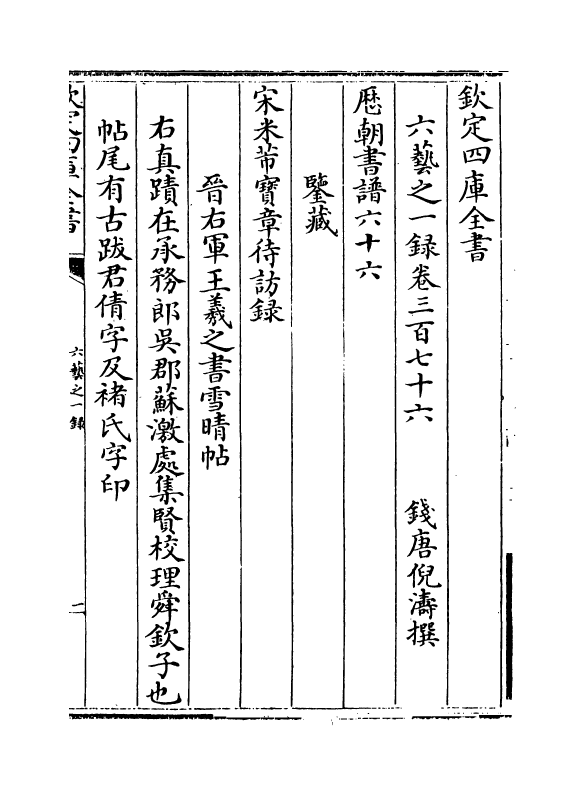 欽定四庫全書
六藝之一録卷三百七十六
錢唐倪濤撰
歷朝書譜六十六
鑒藏
宋米芾寶章待訪録
晉右軍王羲之書雪晴帖
右真蹟在承務郎吳郡蘇激處集賢校理舜欽子也
帖尾有古跋君倩字及褚氏字印
欽定四庫全書
六藝之一録